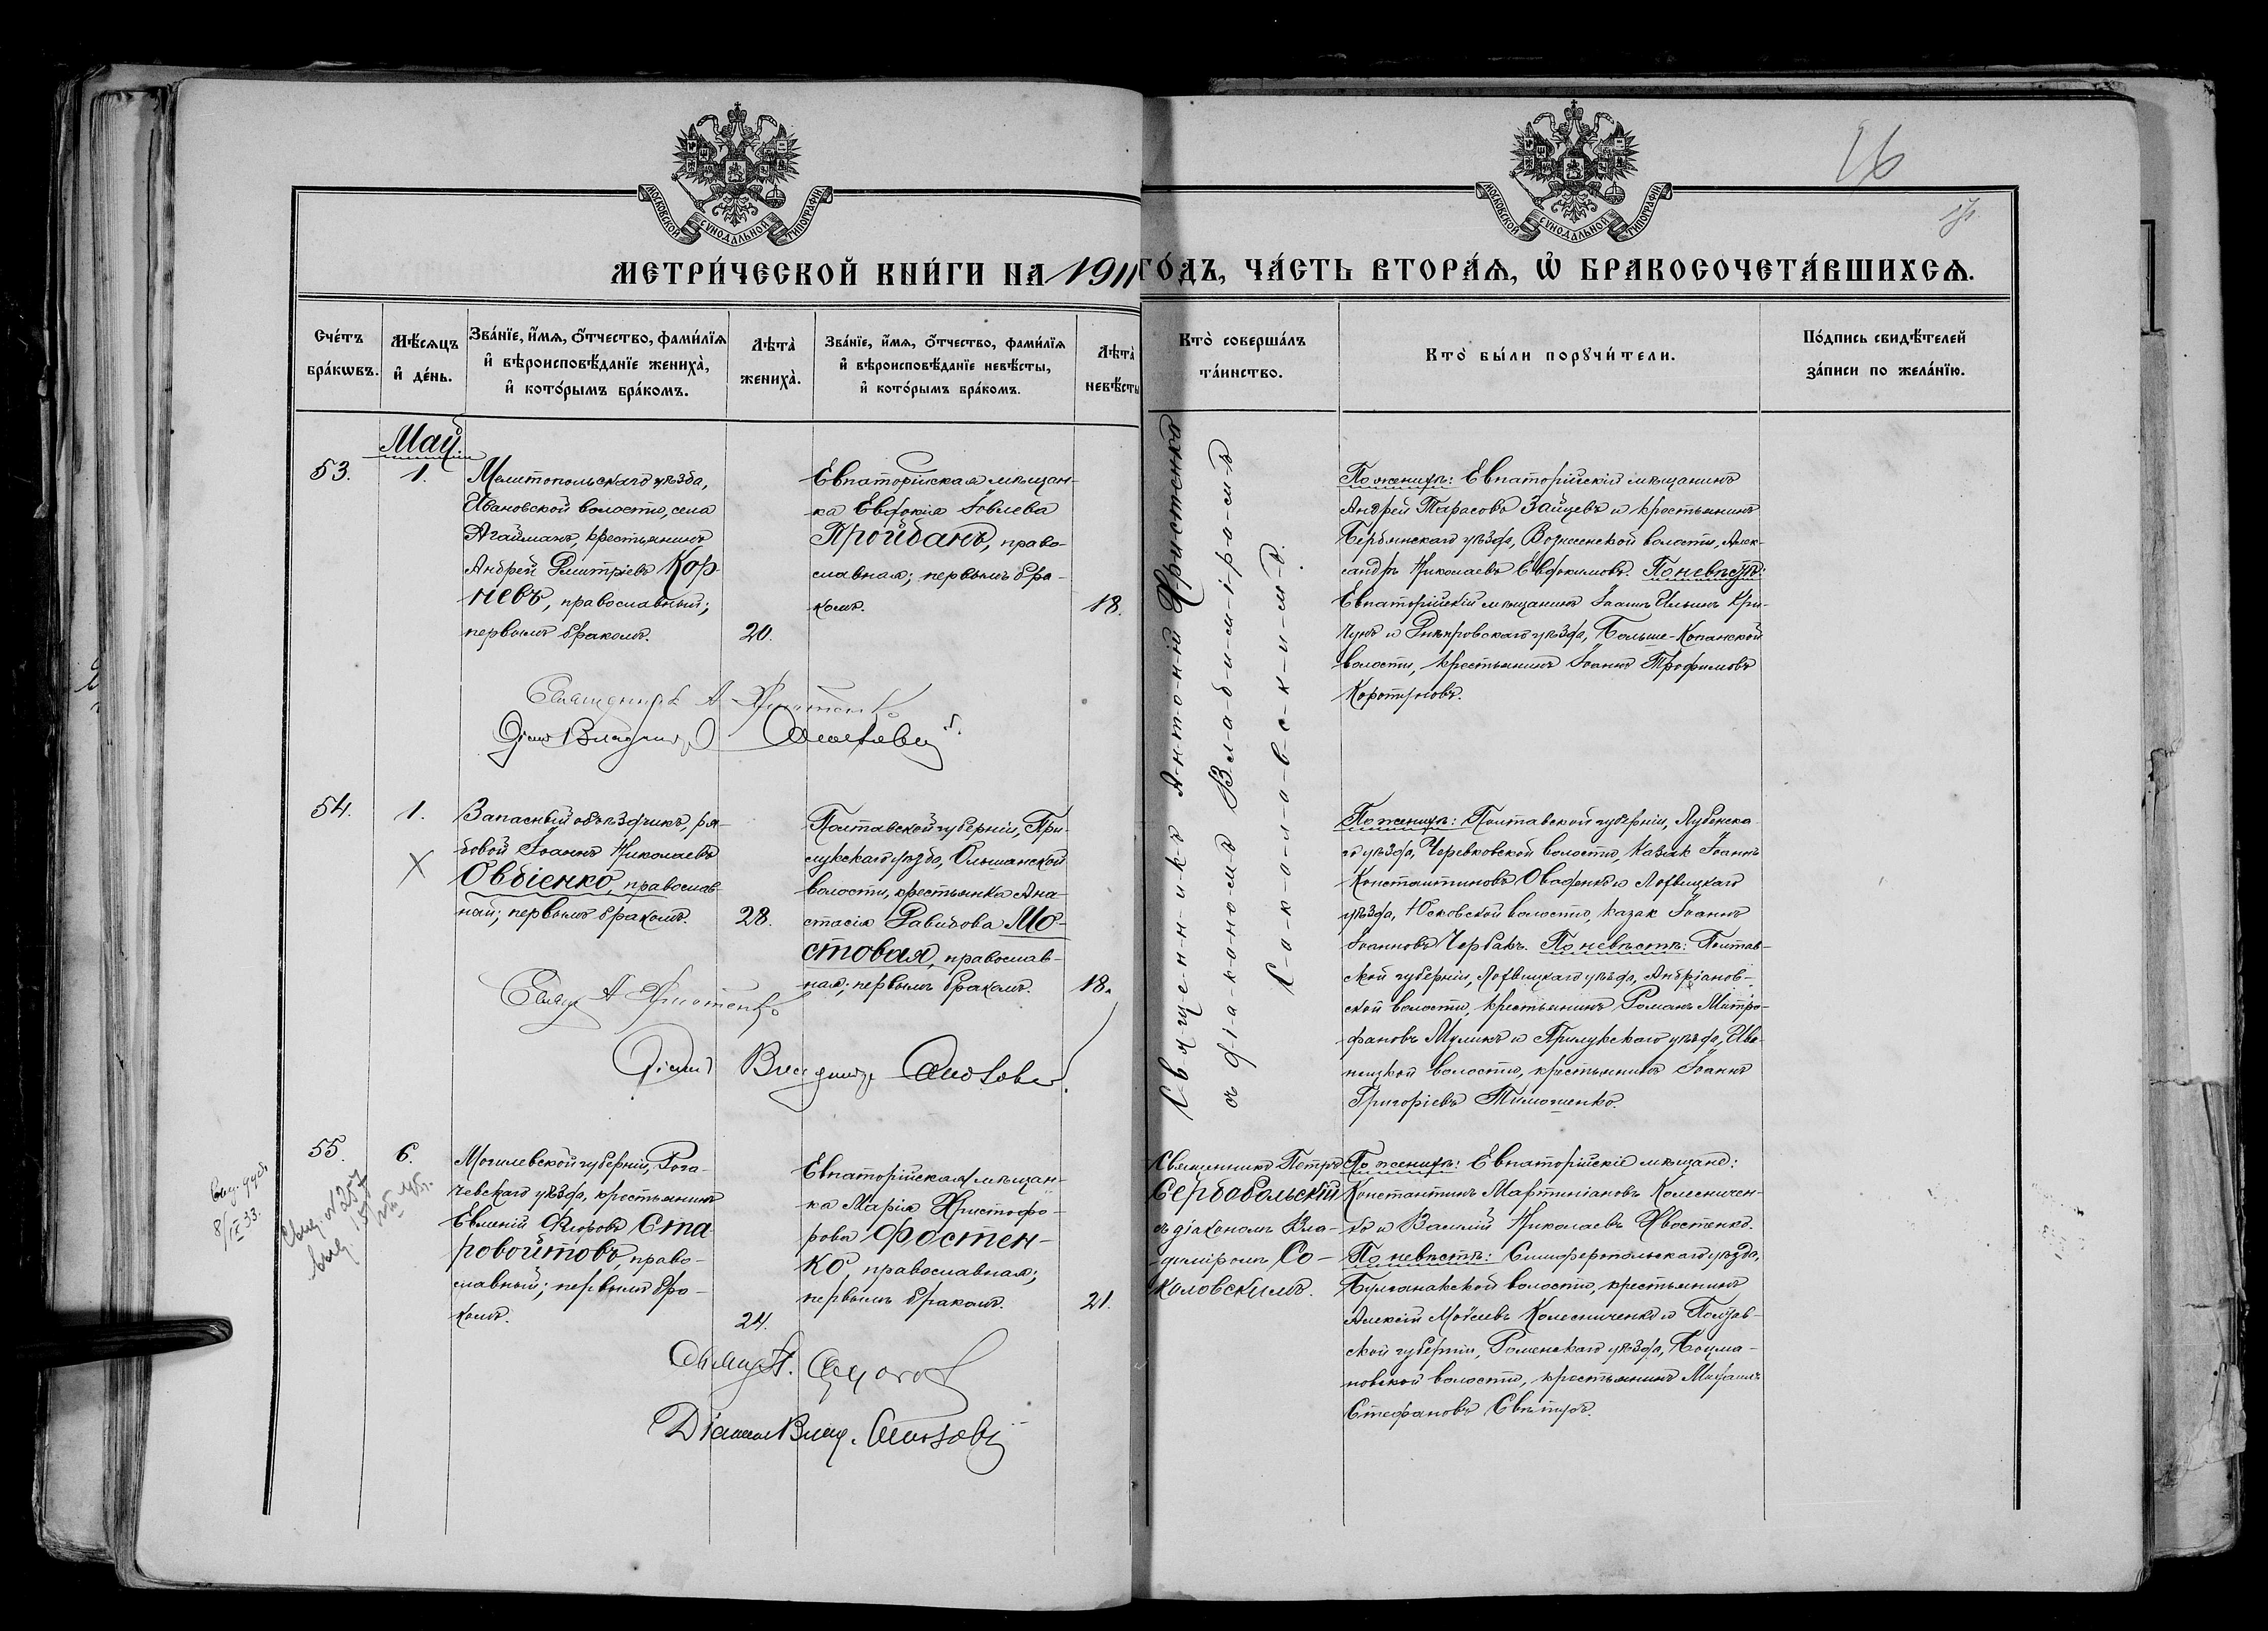 МОСКОВСКОЙ СѴНОДАЛЬНОЙ ТИПОГРАФІИ
МОСКОВСКОЙ СѴНОДАЛЬНОЙ ТИПОГРАФІИ
16
МЕТРИ́ЧЕСКОЙ КНИ́ГИ НА 1911 ГО́ДЪ, ЧА́СТЬ ВТОРА́Ѧ, Ѡ҆ БРАКОСОЧЕТА́ВШИХСѦ.
Сче́тъ бра́кѡвъ.
Мѣ́сѧцъ и҆ де́нь.
Зва́нїе, и҆́мѧ, ѻ҆́тчество, фами́лїѧ
и҆ вѣроисповѣ́данїе жениха̀,
и҆ кото́рымъ бра́комъ.
Лѣта̀ жениха̀.
Зва́нїе, и҆́мѧ, ѻ҆́тчество, фами́лїѧ
и҆ вѣроисповѣ́данїе невѣ́сты,
и҆ кото́рымъ бра́комъ.
Лѣта̀ невѣ́сты
Кто̀ соверша́лъ
та́инство.
Кто̀ бы́ли порꙋчи́тели.
По́дпись свидѣ́телей
за́писи по жела́нїю.
Май
53.
1.
Мелитопольскаго уѣзда,
Ивановской волости, села
Агайманъ, крестьянинъ
Андрей Димитріевъ Кор-
невъ, православный;
первымъ бракомъ.
20.
Евпаторійская мѣщан-
ка Евдокія Іовлева
Пройданъ, право-
славная; первымъ бра-
комъ.
18.
Священникъ Антоній Христенко
съ діакономъ Владиміромъ
Соколовскимъ.
По женихѣ: Евпаторійскій мѣщанинъ
Андрей Тарасовъ Зайцевъ и крестьянинъ
Бердянскаго уѣзда, Вознесенской волости, Алек-
сандръ Николаевъ Евдокимовъ. По невѣстѣ:
Евпаторійскій мѣщанинъ Іоаннъ Ильинъ Кри-
чунъ и Днѣпровскаго уѣзда, Больше-Копанской
волости, крестьянинъ Іоаннъ Трофимовъ
Священникъ А Христенко
54.
1.
Запасный объѣздчикъ, ря-
довой Іоаннъ Николаевъ
Овдіенко, православ-
ный; первымъ бракомъ.
28.
Полтавской губерніи, При-
лукскаго уѣзда, Ольшанской
волости, крестьянка Ана-
стасія Давидова Мо-
стовая, православ-
ная; первымъ бракомъ.
18.
По женихѣ: Полтавской губерніи, Лубенска-
го уѣзда, Черевковской волости, казак Іоаннъ
Константиновъ и Лохвицкаго
уѣзда, Юсковской волости, казак Іоаннъ
Іоанновъ По невѣстѣ: Полтав-
ской губерніи, Лохвицкаго уѣзда, Андріанов-
ской волости, крестьянинъ Романъ Митро-
фановъ Мулинъ и Прилукскаго уѣзда, Ива-
ницкой волости, крестьянинъ Іоаннъ
Григоріевъ Тимошенко.
Свящ А Христенко
55.
6.
Могилевской губерніи, Рога-
чевскаго уѣзда, крестьянинъ
Евменій Ста-
ровойтовъ, право-
славный; первымъ бра-
комъ.
24.
Евпаторійская мѣщан-
ка Марія Христофо-
рова Фостен-
ко, православная;
первымъ бракомъ.
21.
Священникъ Петръ
Сербабольскій
съ діакономъ Вла-
диміромъ Со-
коловскимъ.
По женихѣ: Евпаторійскіе мѣщане:
Константинъ Мартиніановъ Колесничен-
ко и Василій Николаевъ Хвостенко.
По невѣстѣ: Симферопольскаго уѣзда,
Булганакской волости, крестьянинъ
Алексій Колесниченко и Полтав-
ской губерніи, Роменскаго уѣзда,
новской волости, крестьянинъ Михаилъ
Стефановъ
8/IX 33.